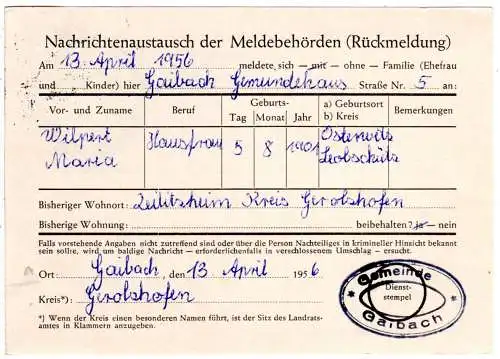 Nachrichtenaustausch der Meldebehörden (Rückmeldung)
Am 13. April 1956 meldete sich — mit — ohne — Familie (Ehefrau
und Kinder) hier Gaibach Gemeindehaus Straße Nr. 5 an:
Vor- und Zuname Beruf Geburts- Tag Monat Jahr a) Geburtsort b) Kreis Bemerkungen
Wilpert Hausfrau 5 8 1901 Osterwitz
Maria Leobschütz
Bisheriger Wohnort: Zeilitzheim Kreis Gerolzhofen
Bisherige Wohnung: beibehalten? ja — nein
Falls vorstehende Angaben nicht zutreffend sind oder über die Person Nachteiliges in krimineller Hinsicht bekannt
sein sollte, wird um baldige Nachricht — erforderlichenfalls in verschlossenem Umschlag — ersucht.
Ort: Gaibach, den 13 April 1956
Kreis*): Gerolzhofen
*) Wenn der Kreis einen besonderen Namen führt, ist der Sitz des Landrats-
amtes in Klammern anzugeben.
Gemeinde
Dienst-
stempel
* Gaibach *